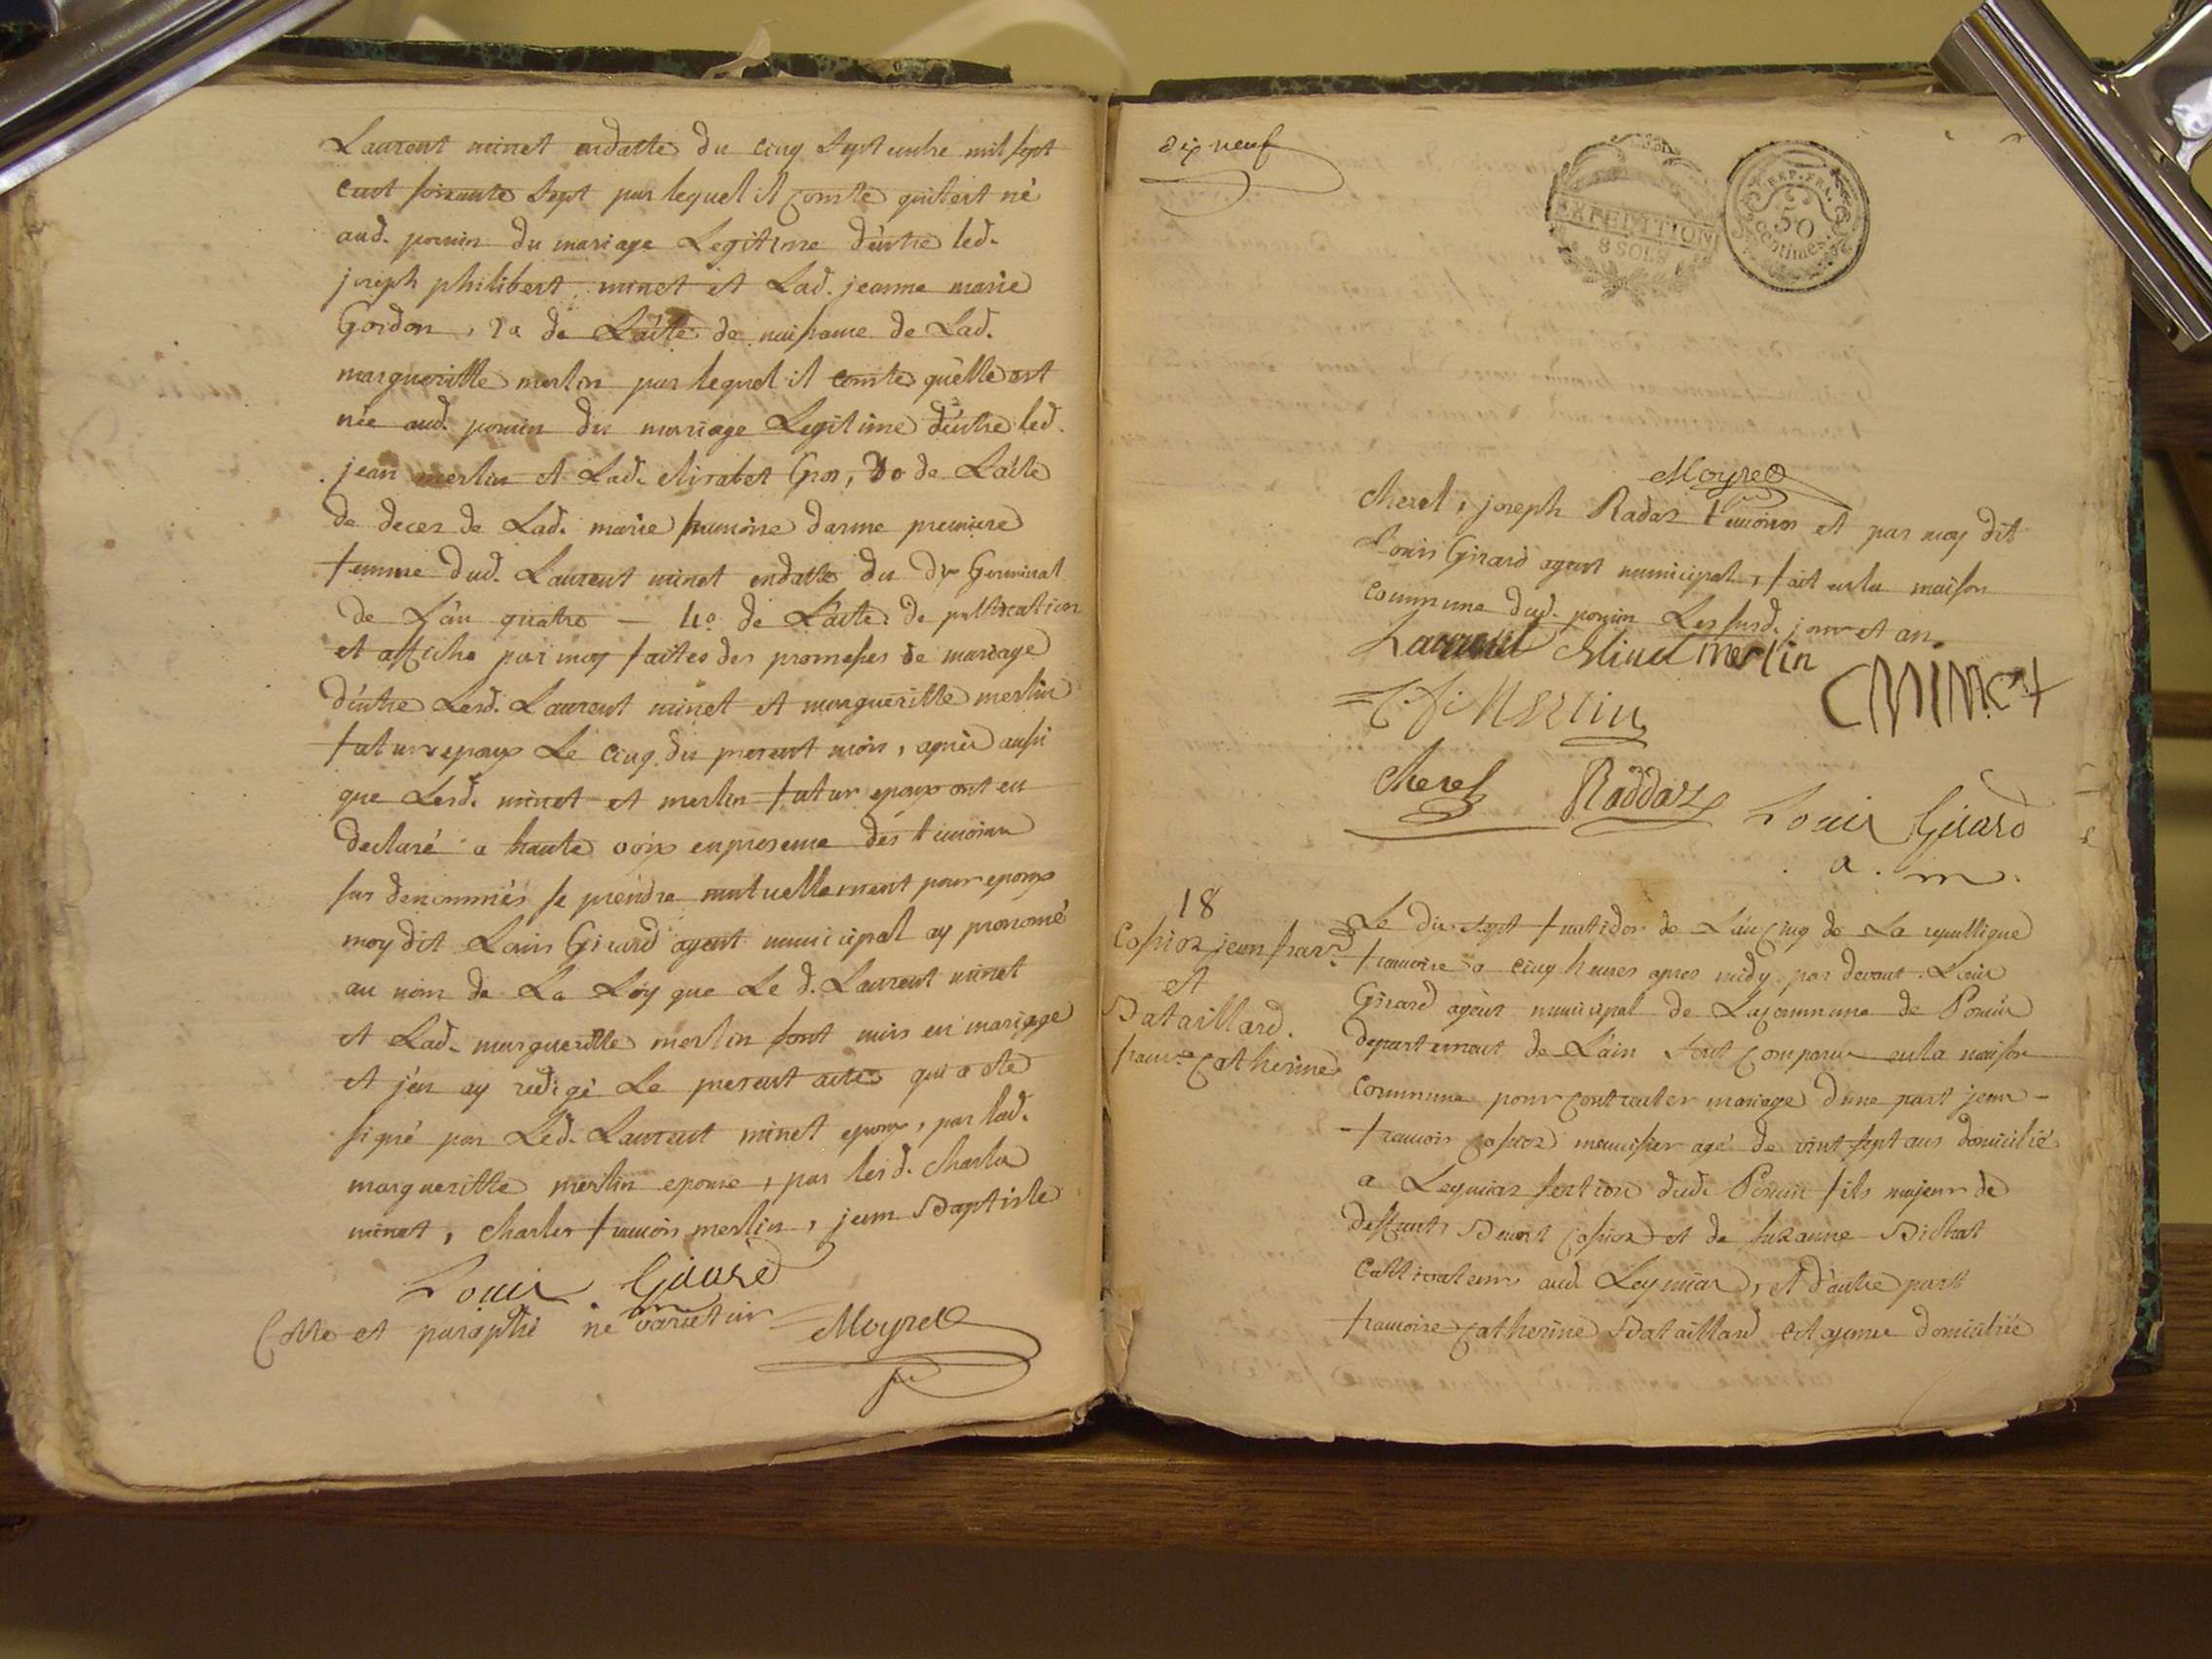 Laurent minet endatte du cinq Septembre mil sept
cent soixante Sept par lequel il conste quil est né
aud. poncin du mariage Legitime d'entre led.
joseph philibert minet et Lad. jeanne marie
Gordon, 2o de L'acte de naissance de Lad.
margueritte merlin par lequel il conste quelle est
née aud. poncin du mariage Legitime d'entre led.
jean merlin et Lad. elizabet Gros, 3o de L'acte
de deces de Lad. marie premiere
femme dud. Laurent minet endatte du Germinal
de L'an quatre — 4o de L'acte de publication
et affiche par moy faites des promesses de mariage
d'entre Lesd. Laurent minet et margueritte merlin
futurs epoux Le cinq du present mois, après aussi
que Lesd. minet et merlin futur epoux ont eu
declaré a haute voix en presence des temoins
sus denommés se prendre mutuellement pour epoux
moy dit Louis Girard agent municipal ay prononcé
au nom de La Loy que Le d. Laurent minet
et Lad. margueritte merlin sont unis en mariage
et j'en ay redigé Le present acte qui a ete
signé par Led. Laurent minet epoux, par lad.
margueritte merlin epouse, par lesd. charles
minet, charles francois merlin, jean Baptiste
Louis Girard
Cotte et paraphé ne varietur Moyret
dix neuf
EXPEDITION
8 SOLS
REP. FRA.
50
centimes
Moyret
cherel, joseph Radaz temoins et par moy dit
Louis Girard agent municipal, fait en la maison
commune dud. poncin Les susd. jour et an.
Laurent Minet merlin
C MINET
C. f. Merlin
Cherel Raddaz Louis Girard
a. m.
18
Cosioz jean fran.
et
Bataillard.
franc.se Catherine
Le dix sept fructidor de L'an cinq de La republique
francoise a cinq heures apres midy par devant Louis
Girard agent municipal de La commune de Poncin
departement de L'ain sont comparu en la maison
commune pour contracter mariage d'une part jean
francois Cosioz menuisier agé de vint sept ans domicilié
a Leymiaz section dud. Poncin fils majeur de
deffunt Benoit Cosioz et de suzanne
Cultivateurs aud. Leymiaz, et d'autre part
francoise catherine Bataillard citoyenne domiciliée